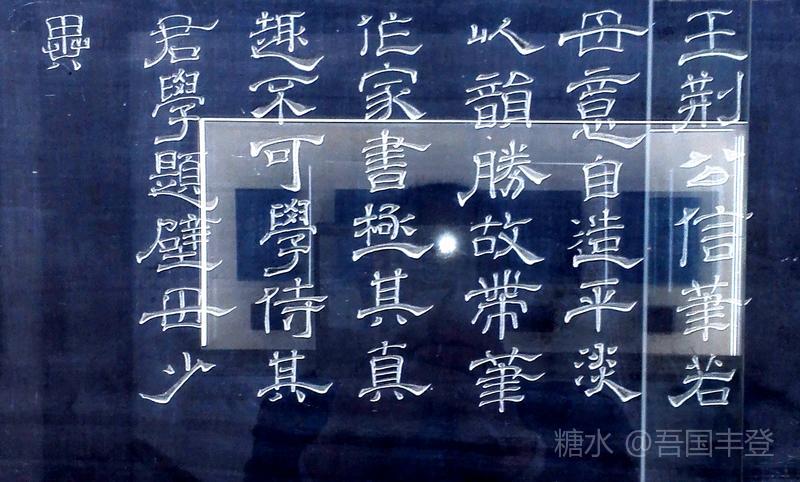 王荆公信筆若
毋意自造平淡
以韻勝故帶筆
作家書極其真
趣不可學侍其
君學題壁毋少
異
糖水 @吾国丰登